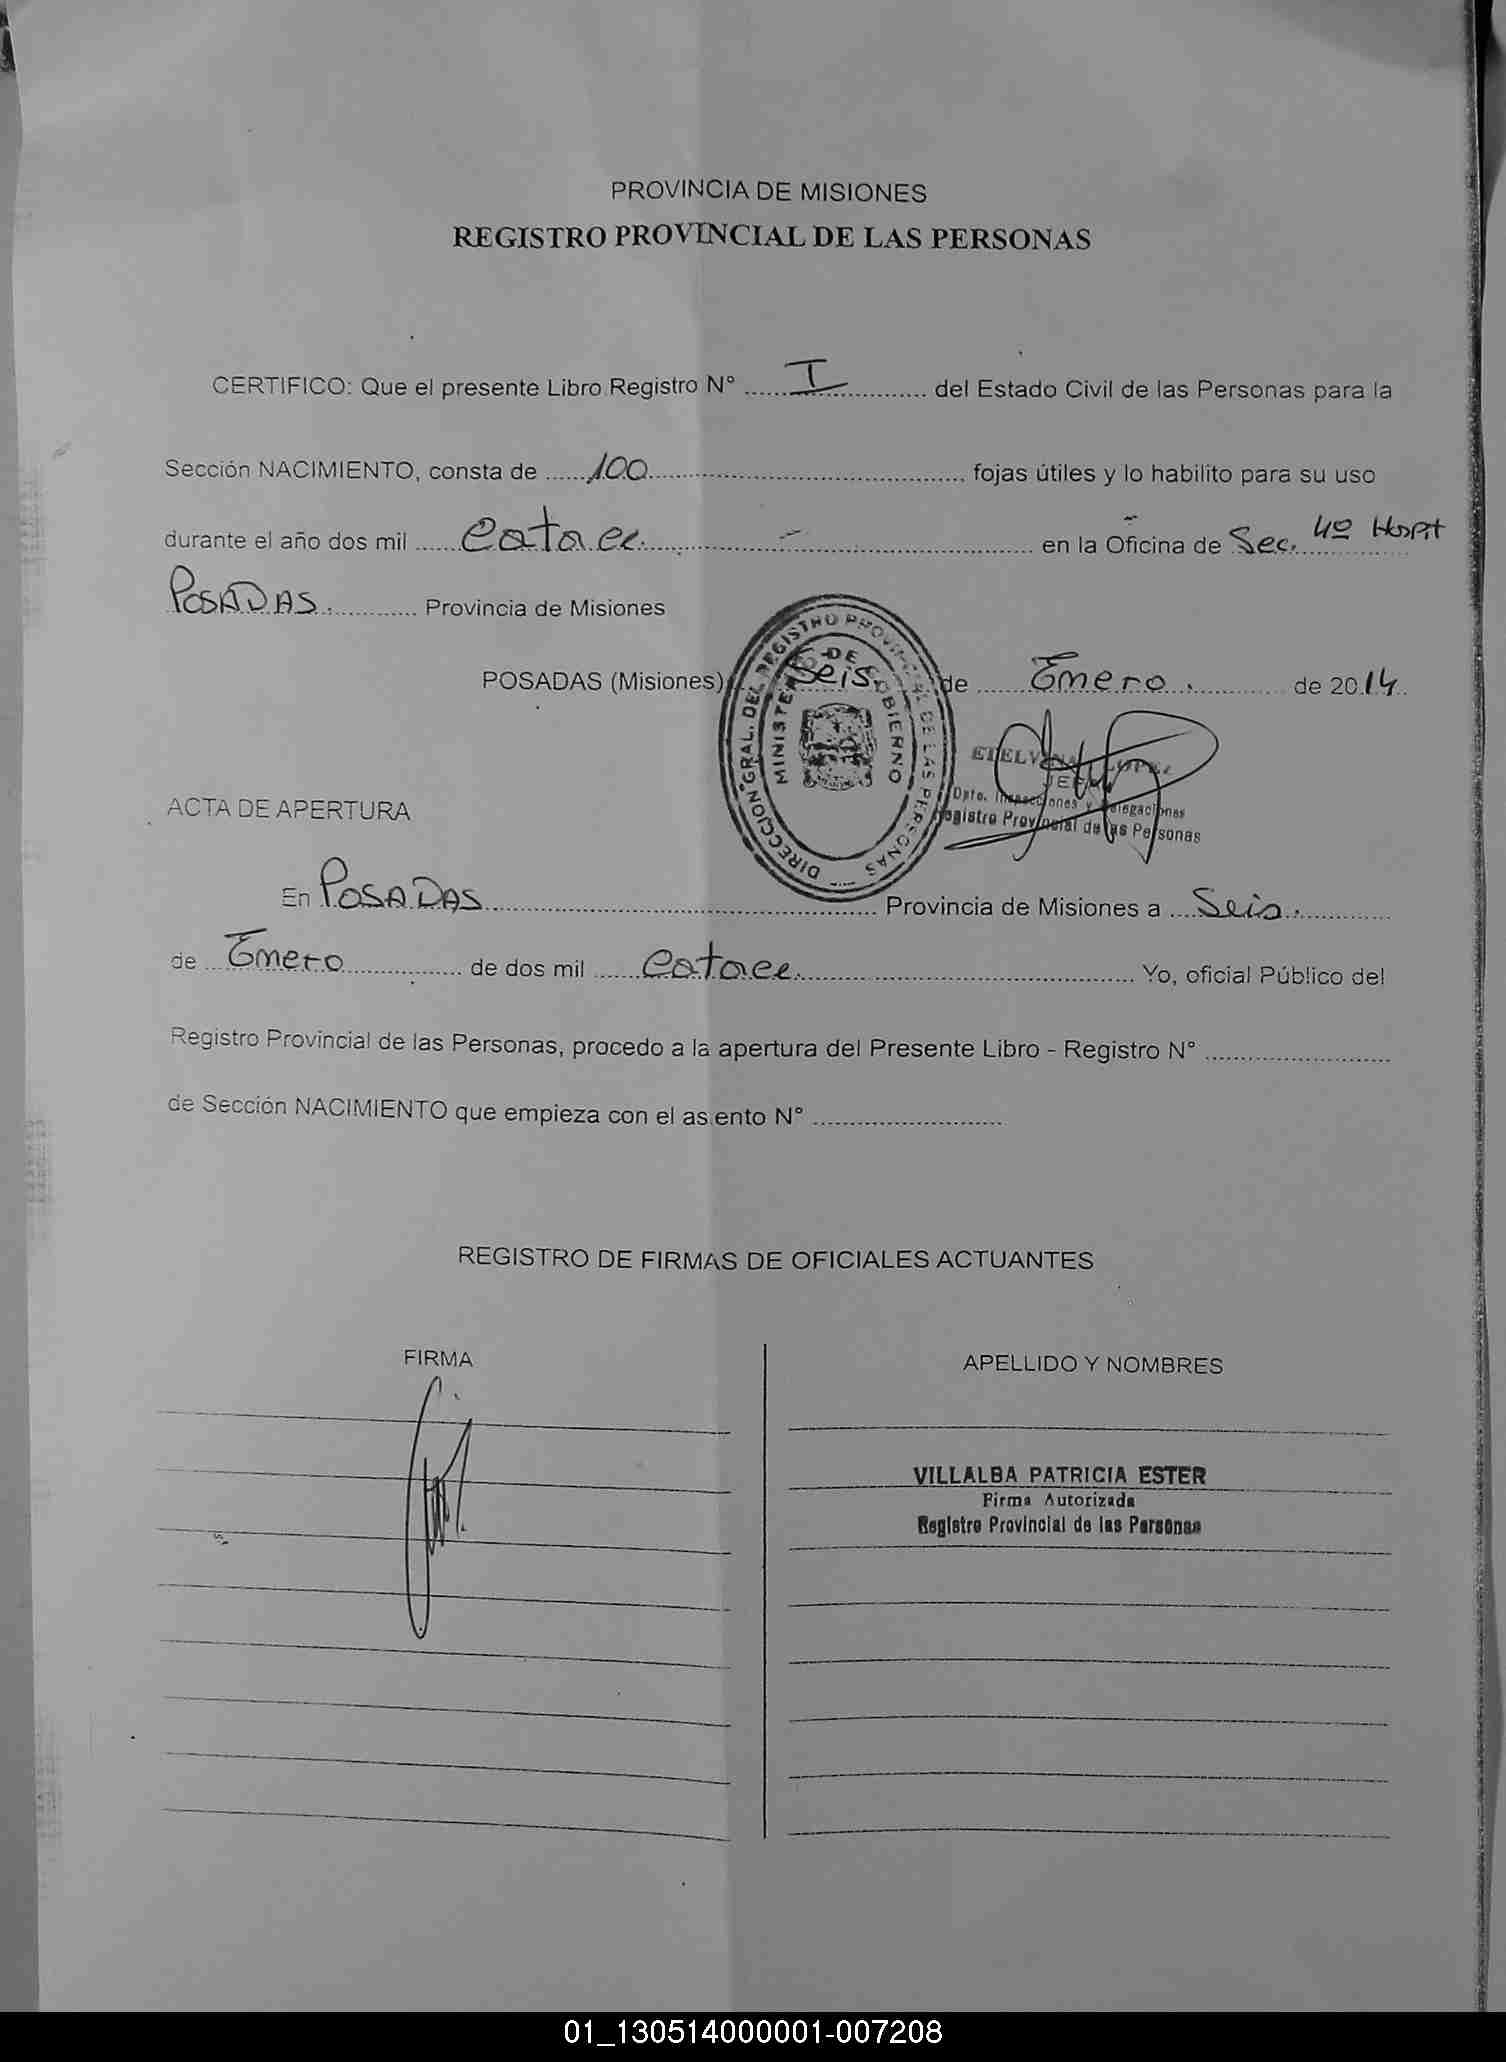 PROVINCIA DE MISIONES
REGISTRO PROVINCIAL DE LAS PERSONAS
CERTIFICO: Que el presente Libro Registro N° I del Estado Civil de las Personas para la
Sección NACIMIENTO, consta de 100 fojas útiles y lo habilito para su uso
durante el año dos mil catorce en la Oficina de Sec. 4º Hospit
POSADAS. Provincia de Misiones
POSADAS (Misiones) Seis de Enero. de 2014
DIRECCION GRAL. DEL REGISTRO PROVINCIAL DE LAS PERSONAS
MINISTERIO DE GOBIERNO
ETELVINA LOPEZ
JEFA
Dpto. Inspecciones y Delegaciones
Registro Provincial de las Personas
ACTA DE APERTURA
En POSADAS Provincia de Misiones a Seis.
de Enero de dos mil catorce Yo, oficial Público del
Registro Provincial de las Personas, procedo a la apertura del Presente Libro - Registro N°
de Sección NACIMIENTO que empieza con el asiento N°
REGISTRO DE FIRMAS DE OFICIALES ACTUANTES
FIRMA APELLIDO Y NOMBRES
VILLALBA PATRICIA ESTER
Firma Autorizada
Registro Provincial de las Personas
01_130514000001-007208